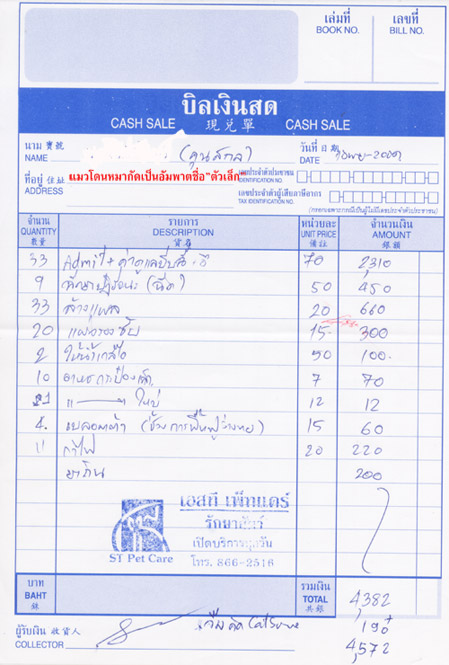 เล่มที่ เลขที่
BOOK NO. BILL NO.
บิลเงินสด
CASH SALE 現兌單 CASH SALE
นาม 寶號 วันที่ 日期
NAME DATE
ที่อยู่ 住址 แมวโดนหมากัดเป็นอัมพาตชื่อ"ตัวเล็ก" เลขประจำตัวประชาชน
ADDRESS IDENTIFICATION NO.
เลขประจำตัวผู้เสียภาษีอากร
TAX IDENTIFICATION NO.
(กรอกเฉพาะกรณีเป็นผู้ไม่มีเลขประจำตัวประชาชน)
จำนวน รายการ หน่วยละ จำนวนเงิน
QUANTITY DESCRIPTION UNIT PRICE AMOUNT
數量 貨名 備註 銀額
33 Admit + 70 2310
9 (ฉีด) 50 450
33 ล้างแผล 20 660
20 แผ่นรองซับ 15 300
2 ให้น้ำเกลือ 50 100
10 อาหารกระป๋องเล็ก 7 70
ใหญ่ 12 12
4 15 60
11 ค่าไฟ 20 220
ยากิน 200
เอสที เพ็ทแคร์
รักษาสัตว์
เปิดบริการทุกวัน
ST Pet Care โทร. 866-2516
บาท รวมเงิน
BAHT TOTAL 4,382
銖 共銀
ผู้รับเงิน 收貨人 190
COLLECTOR 4,572